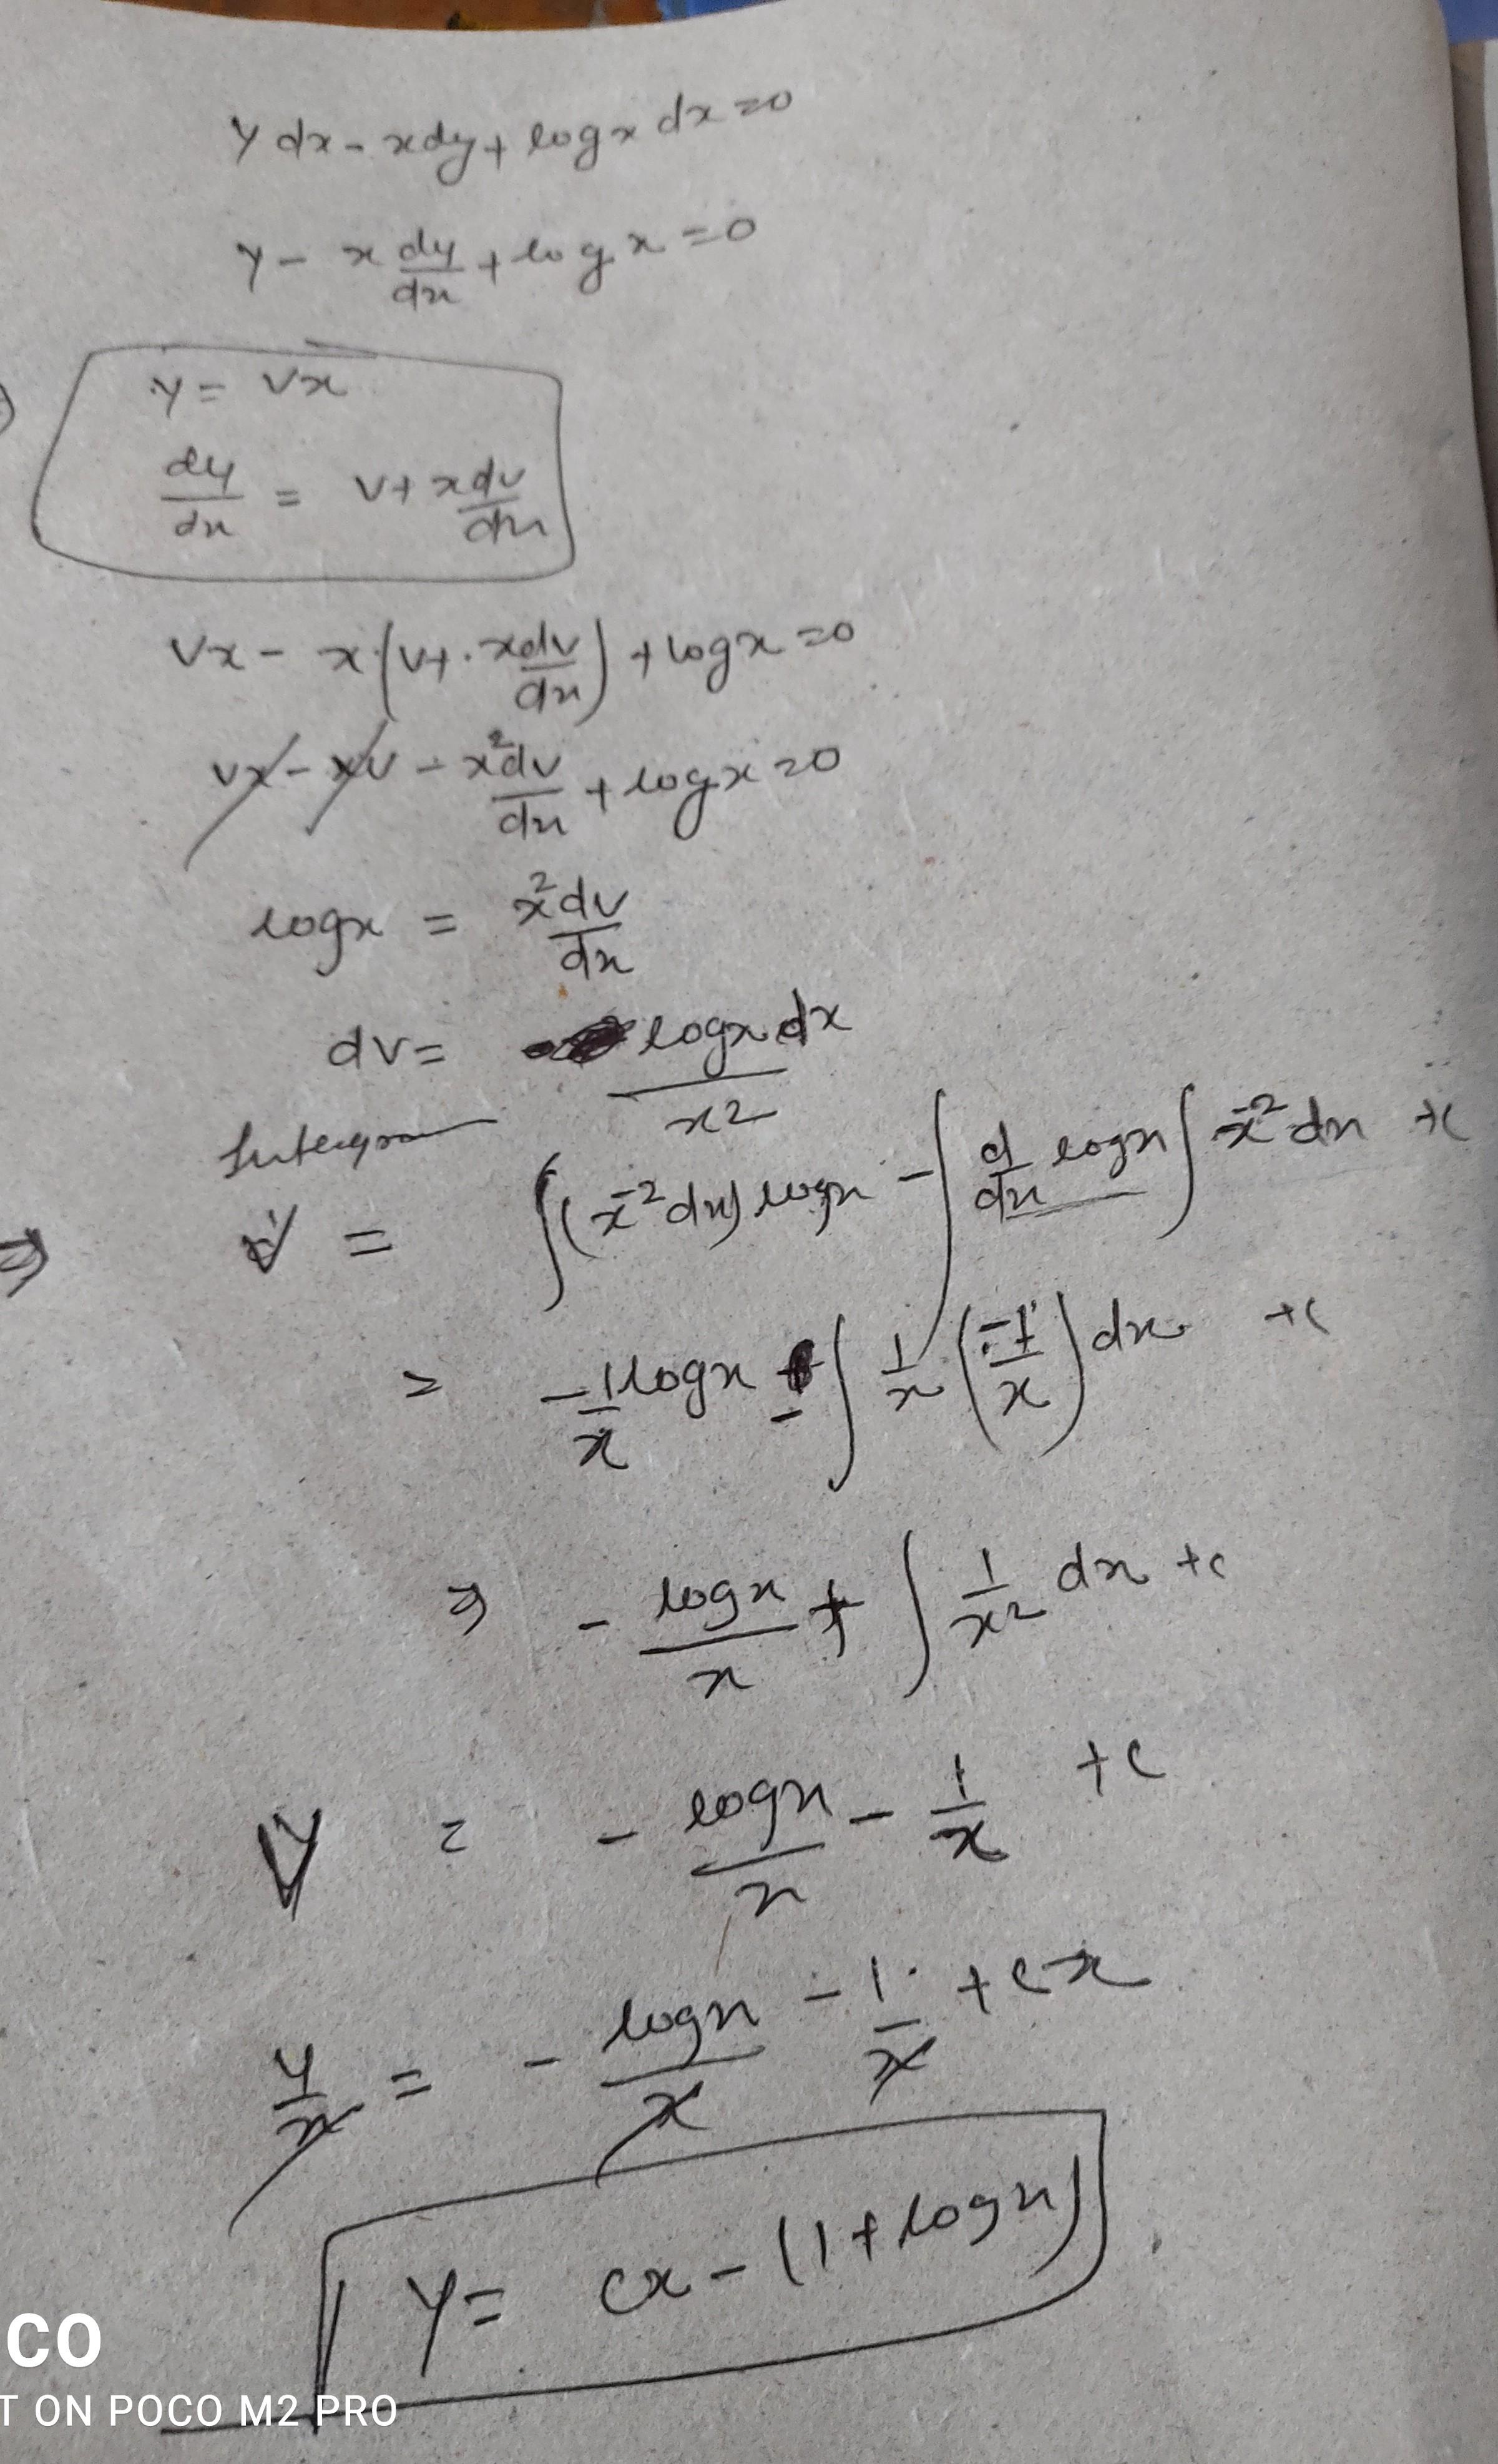 y dx - x dy + log x dx = 0
y - x dy/dx + log x = 0
y = vx
dy/dx = v + x dv/dx
vx - x (v + x dv/dx) + log x = 0
vx - xv - x² dv/dx + log x = 0
log x = x² dv/dx
dv = log x dx / x²
⇒ v = ∫(x⁻² dx) log x - ∫ d/dx log x ∫ x⁻² dx + c
= -1/x log x - ∫ 1/x (-1/x) dx + c
⇒ - log x / x + ∫ 1/x² dx + c
V = - log x / x - 1/x + c
y/x = - log x / x - 1/x + cx
y = cx - (1 + log x)
CO
T ON POCO M2 PRO